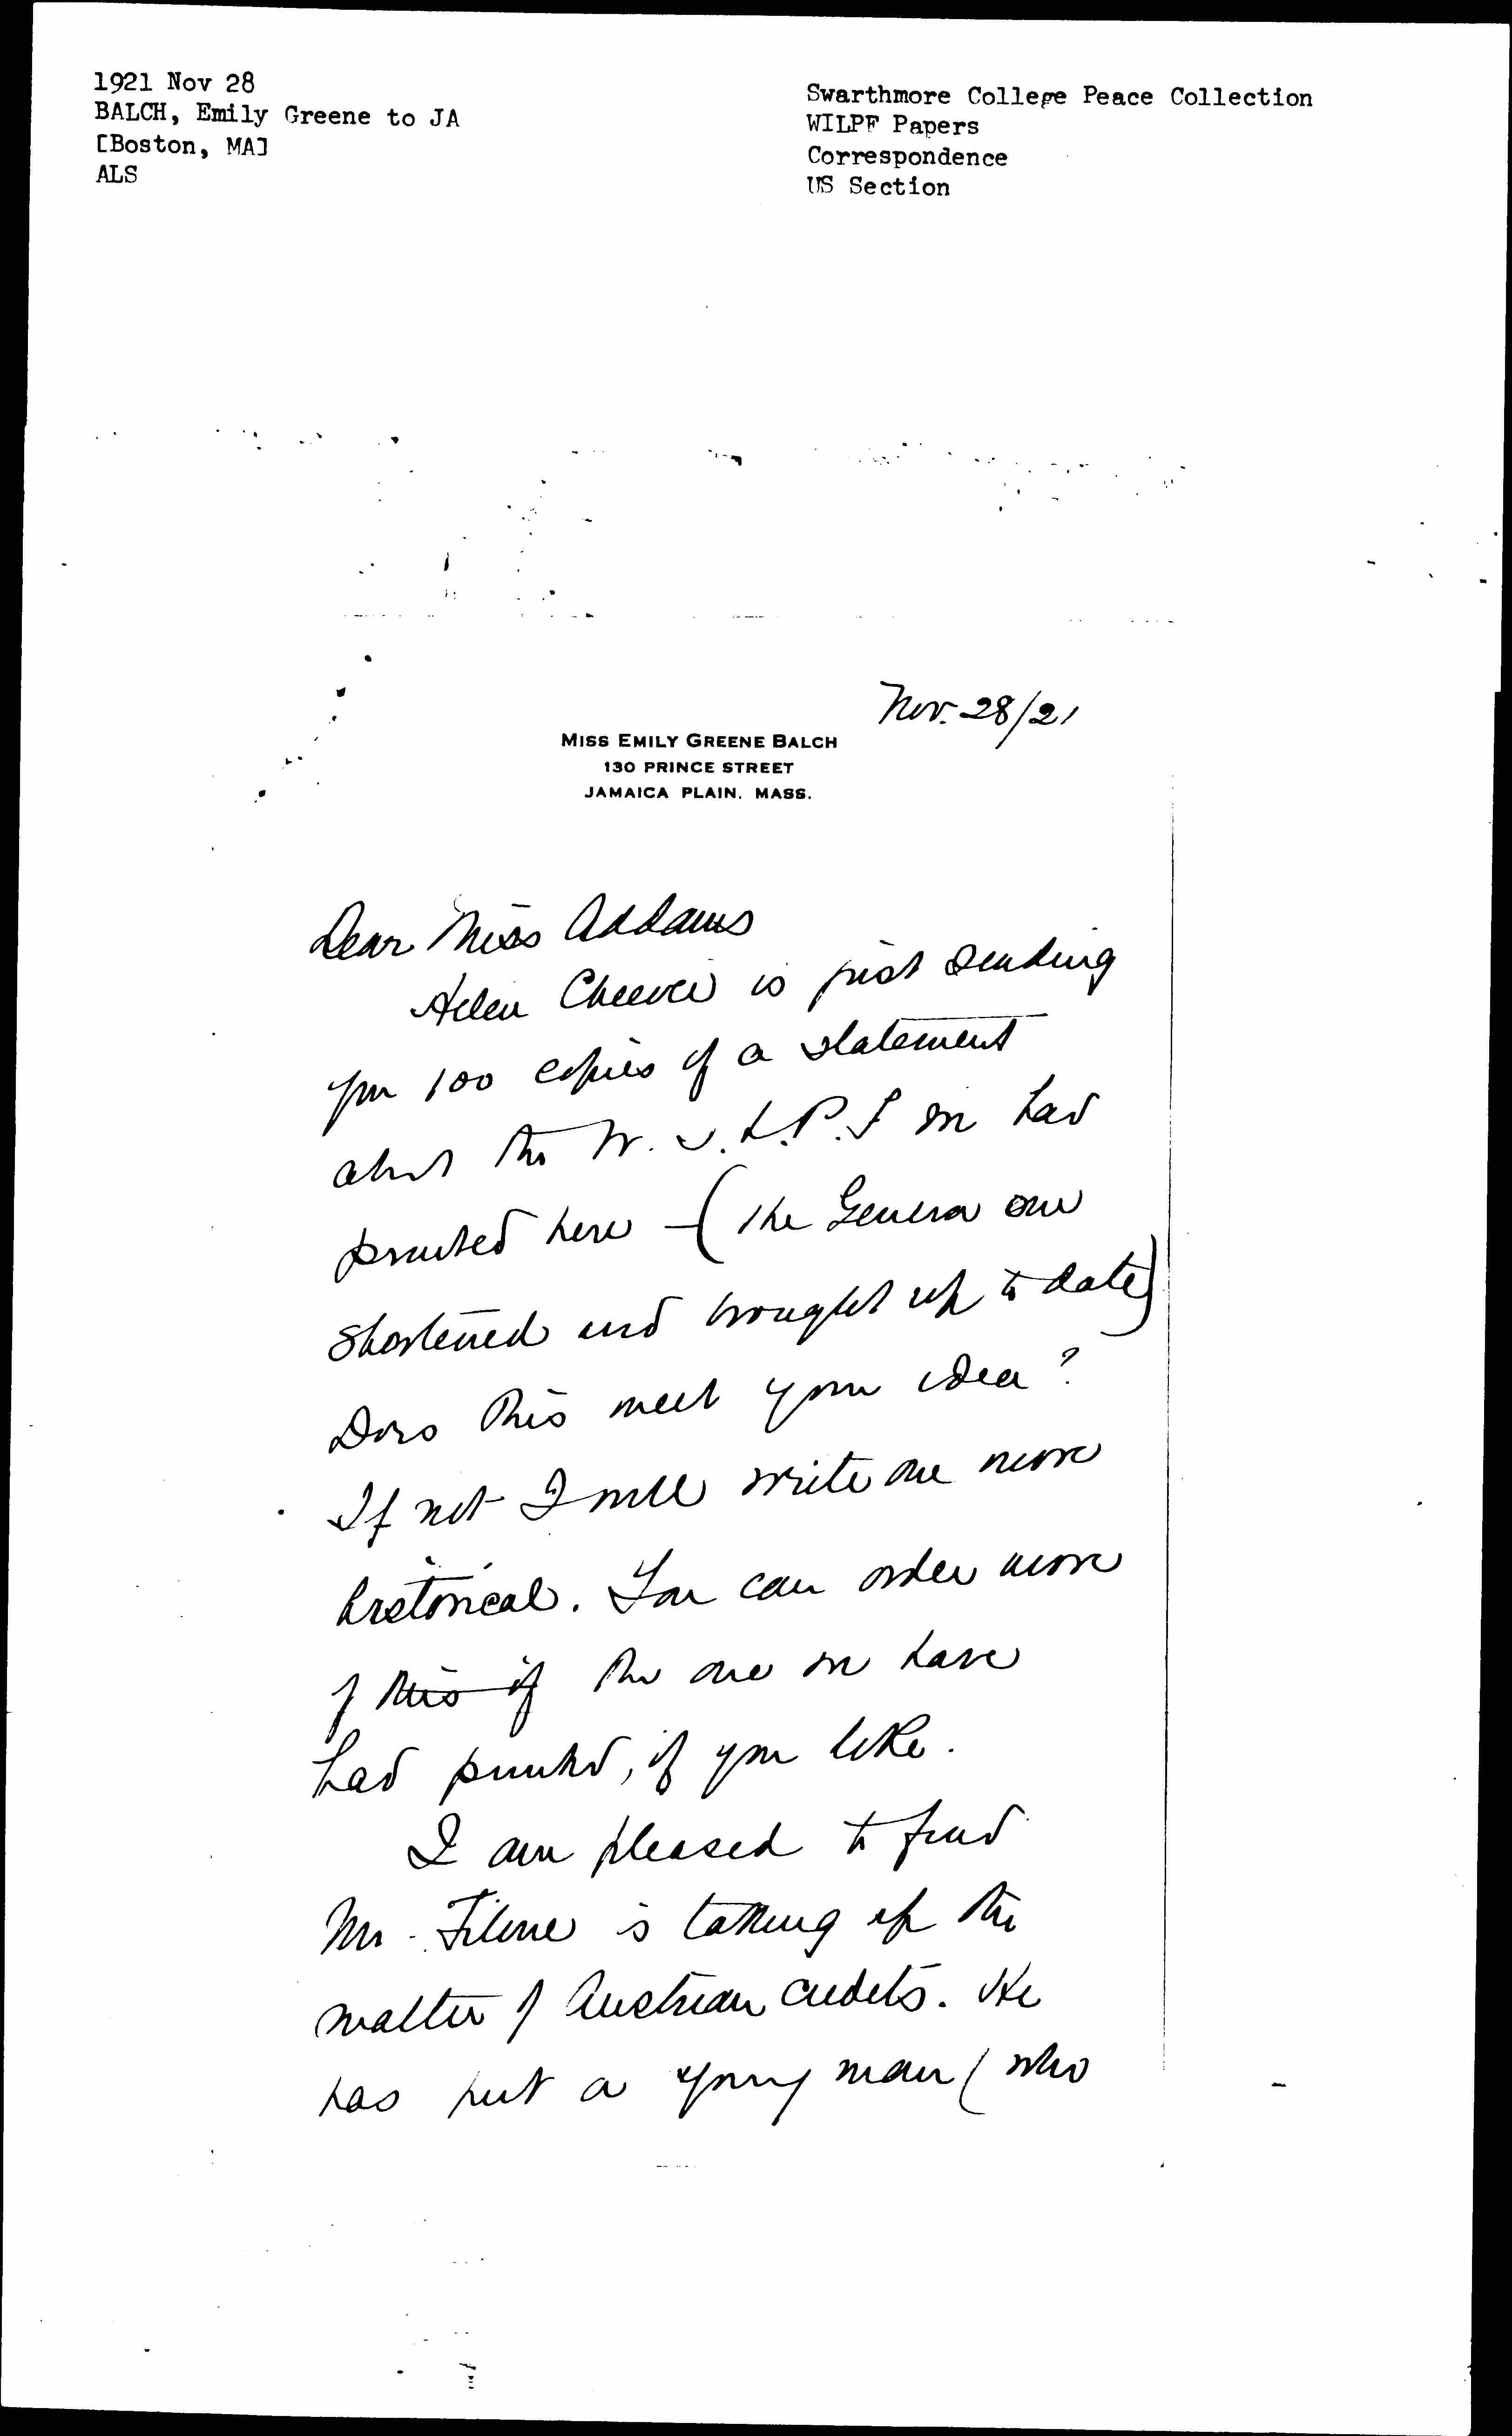 1921 Nov 28
BALCH, Emily Greene to JA
[Boston, MA]
ALS
Swarthmore College Peace Collection
WILPF Papers
Correspondence
US Section
Nov. 28/21
MISS EMILY GREENE BALCH
130 PRINCE STREET
JAMAICA PLAIN, MASS.
Dear Miss Addams
Helen Cheever is just sending
you 100 copies of a statement
about the W. I. L. P. F we had
printed here – (the Geneva one
shortened and brought up to date)
Does this meet your idea?
If not I will write one more
historical. You can order more
of this if the one we have
had printed, if you like.
I am pleased to find
Mr. Filene is taking up the
matter of Austrian credits. He
has put a young man (who